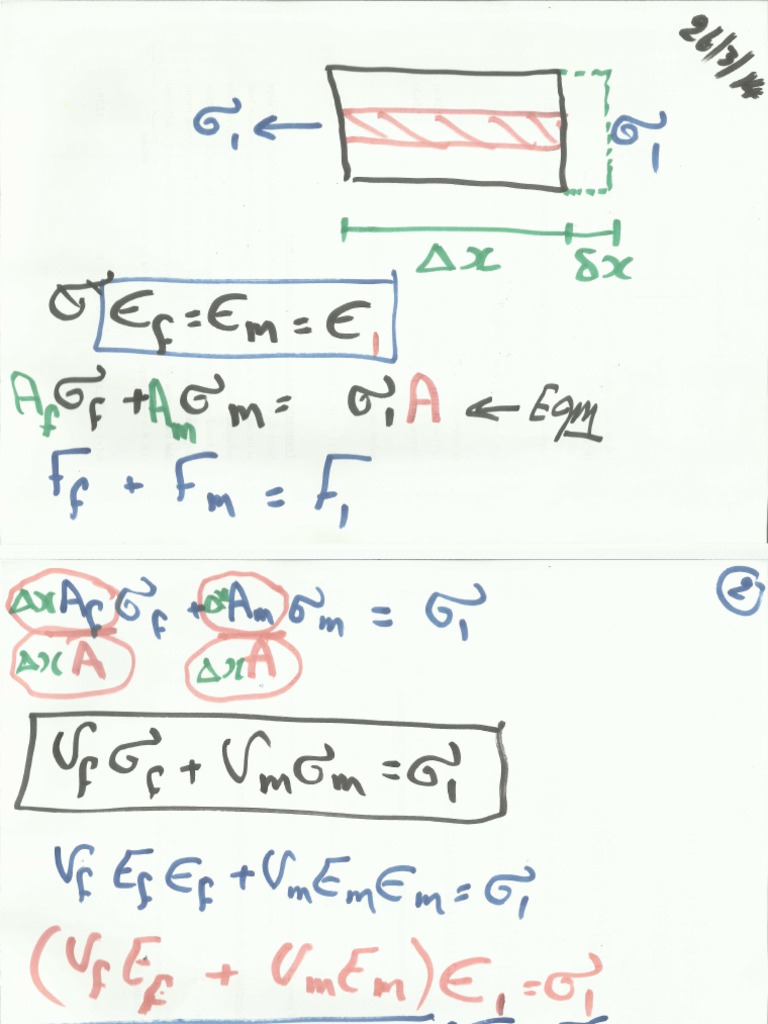 26/3/14
σ₁ ← σ₁
Δx δx
σ ϵf = ϵm = ϵ₁
Af σf + Am σm = σ₁ A ← Eqm
Ff + Fm = F₁
2
Δx Af / Δx A σf + Δx Am / Δx A σm = σ₁
Vf σf + Vm σm = σ₁
Vf Ef ϵf + Vm Em ϵm = σ₁
(Vf Ef + Vm Em) ϵ₁ = σ₁